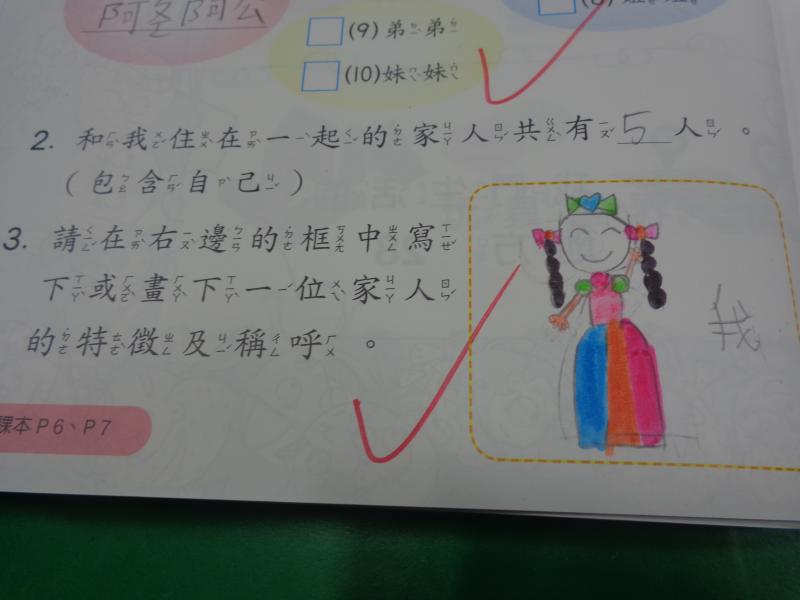 阿爸阿公
(9)弟弟
(10)妹妹
2. 和我住在一起的家人共有 5 人。
(包含自己)
3. 請在右邊的框中寫
下或畫下一位家人
的特徵及稱呼。
我
課本P6、P7